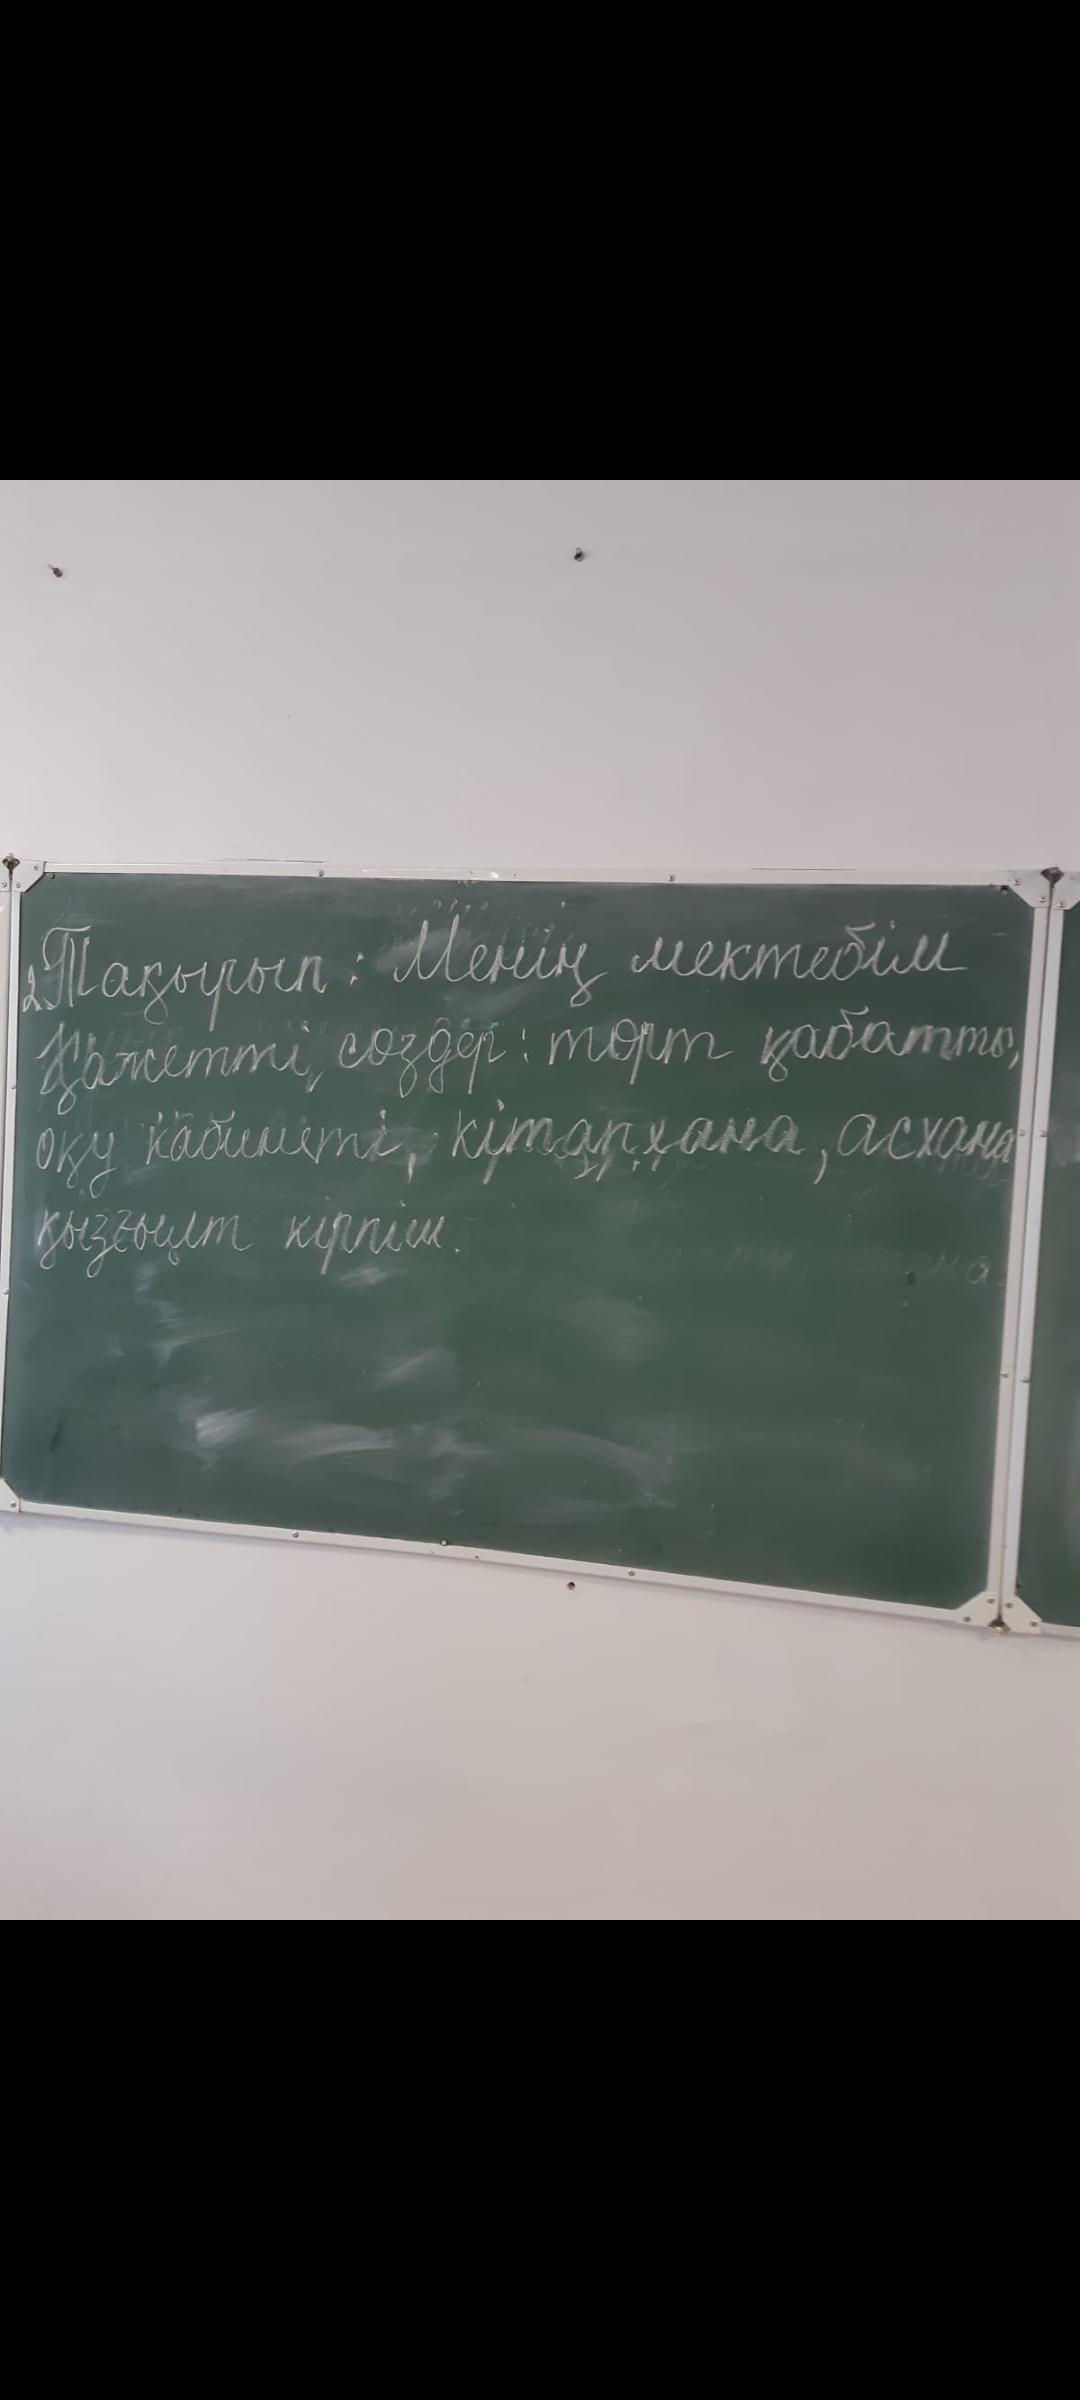 2 Тақырып: Менің мектебім
Қажетті сөздер: төрт қабатты,
оқу кабинеті, кітапхана, асхана
қызғылт кірпіш.